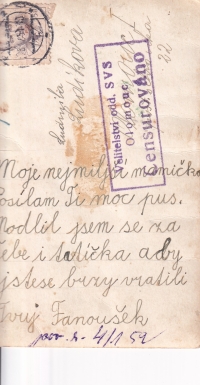 Ludmila
Ludikova
22
Velitelství odd. SVS
Olomouc
Censurováno
Moje nejmilejší mamičko
Posilam Ti moc pus.
Modlil jsem se za
Tebe i tatička aby
jste se brzy vratili
Tvuj Fanoušek
4/1 52